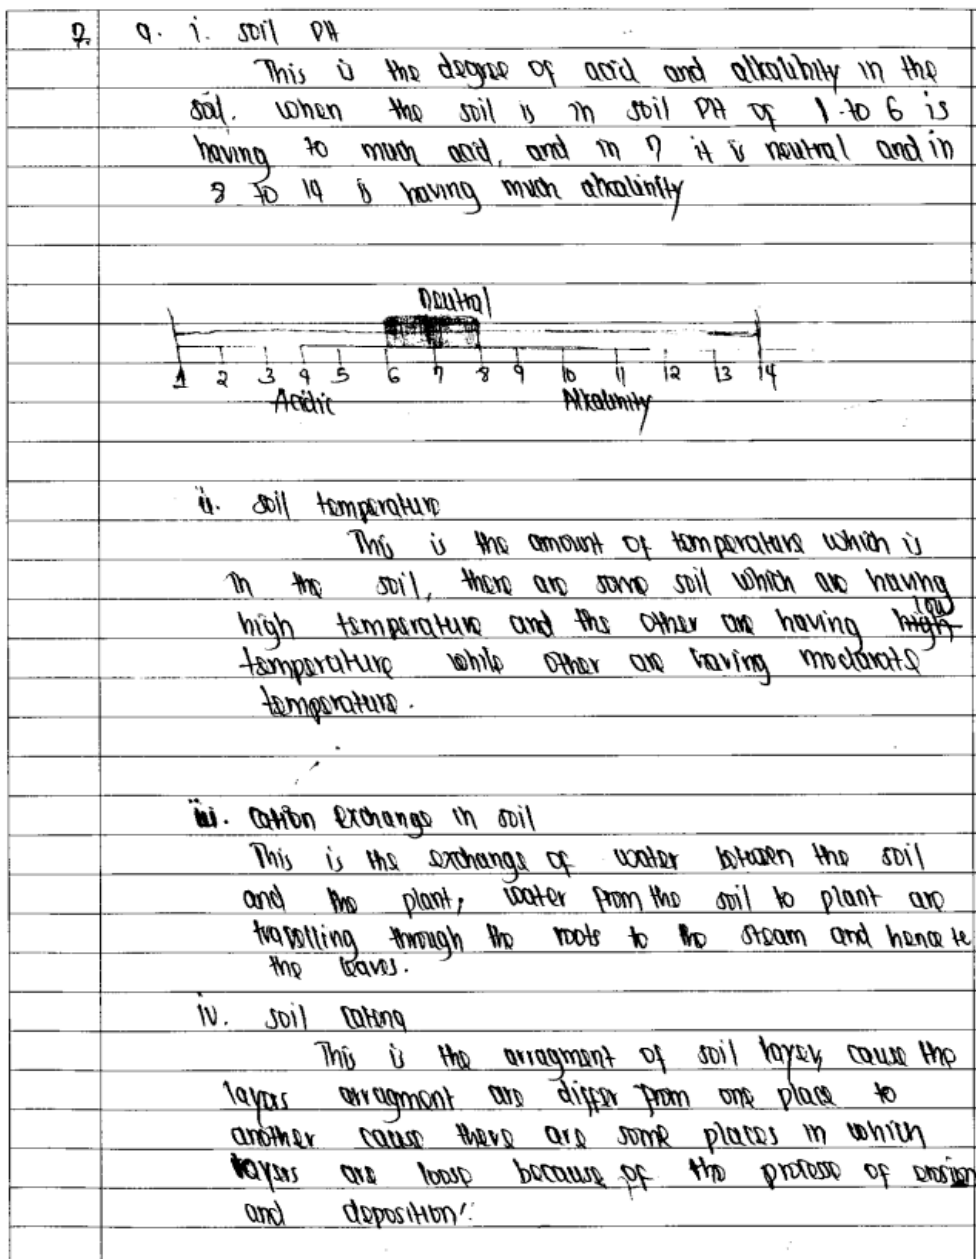 7. a. i. soil PH
This is the degree of acid and alkalinity in the
soil. when the soil is in soil PH of 1 to 6 is
having to much acid, and in 7 it is neutral and in
8 to 14 is having much alkalinity
neutral
1 2 3 4 5 6 7 8 9 10 11 12 13 14
Acidic Alkalinity
ii. soil temperature
This is the amount of temperature which is
in the soil, there are some soil which are having
high temperature and the other are having high low
temperature while other are having moderate
temperature.
iii. cation exchange in soil
This is the exchange of water between the soil
and the plant, water from the soil to plant are
travelling through the roots to the steam and hence to
the leaves.
iv. soil catena
This is the arragment of soil layer, cause the
layers arragment are differ from one place to
another cause there are some places in which
layers are loose because of the processe of erosion
and deposition.